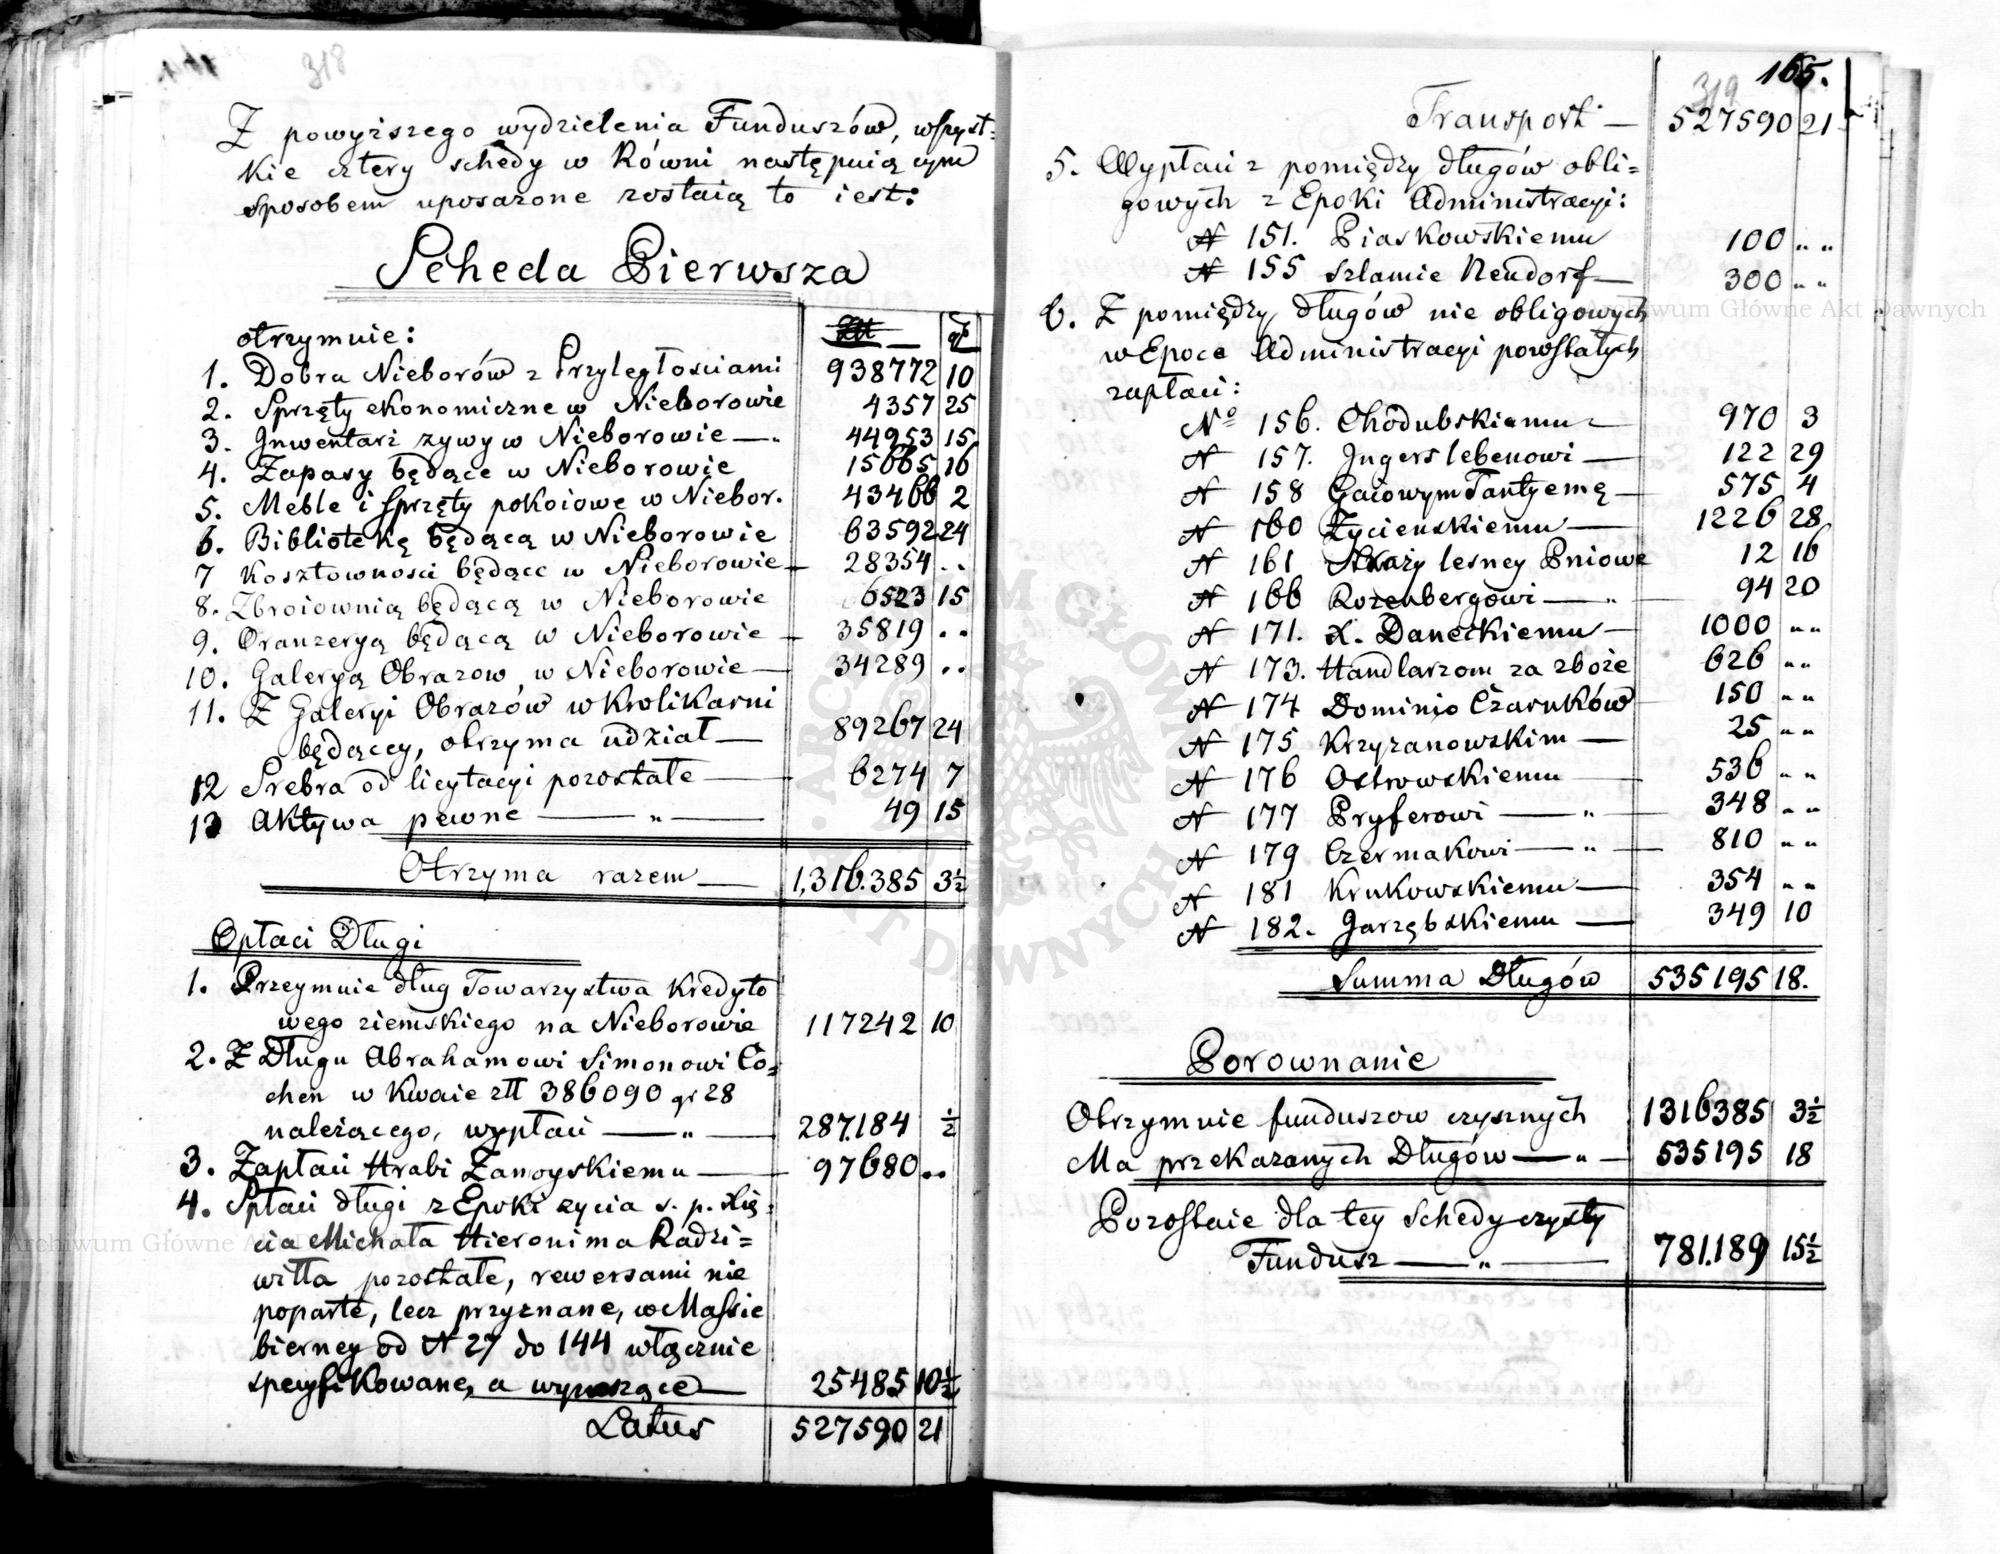 318
Z powyższego wydzielenia Funduszów, wszyst=
kie cztery schedy w Równi następuiącym
sposobem uposażone zostaią to iest:
Scheda Pierwsza
otrzymuie: Złł gr
1. Dobra Nieborów z Przyległościami 938772 10
2. Sprzęty ekonomiczne w Nieborowie 4357 25
3. Inwentarz żywy w Nieborowie — 44953 15
4. Zapasy będące w Nieborowie 15665 16
5. Meble i sprzęty pokoiowe w Niebor. 43466 2
6. Bibliotekę będącą w Nieborowie 63592 24
7 Kosztowności będące w Nieborowie — 28354 ..
8. Zbroiownią będącą w Nieborowie 6523 15
9. Oranżeryą będącą w Nieborowie — 35819 ..
10. Galeryą Obrazow w Nieborowie — 34289 ..
11. Z Galeryi Obrazów w Krolikarni
będącey, otrzyma udział — 89267 24
12 Srebra od licytacyi pozostałe — 6274 7
13 Aktywa pewne — " — 49 15
Otrzyma razem — 1,316.385 3½
Opłaci Długi
1. Przeymuie dług Towarzystwa Kredyto
wego ziemskiego na Nieborowie 117242 10
2. Z Długu Abrahamowi Simonowi Co=
chen w Kwocie złł 386090 gr 28
należącego, wypłaci — " — 287.184 ½
3. Zapłaci Hrabi Zamoyskiemu — 97680 ..
4. Spłaci długi z Epoki życia s. p. Xię
cia Michała Hieronima Radzi=
wiłła pozostałe, rewersami nie
poparte, lecz przyznane, w Massie
bierney od N 27 do 144 włącznie
specyfikowane, a wynoszące — 25485 10½
Latus 527590 21
319 165.
Transport — 527590 21
5. Wypłaci z pomiędzy długów obli=
gowych z Epoki Administracyi:
N 151. Piaskowskiemu 100 " "
N 155 Szlamie Neudorf — 300 " "
6. Z pomiędzy długów nie obligowych
w Epoce Administracyi powstałych
zapłaci:
No 156. Chodubskiemu — 970 3
N 157. Ingerslebenowi — 122 29
N 158 Gaiowym Tantyemę — 575 4
N 160 Życienskiemu — 1226 28
N 161 Straży lesney Pniowe 12 16
N 166 Rozenbergowi — " — 94 20
N 171. X. Daneckiemu — 1000 " "
N 173. Handlarzom za zboże 626 " "
N 174 Dominio Czarnków 150 " "
N 175 Krzyżanowskim — 25 " "
N 176 Ostrowskiemu — 536 " "
N 177 Pryferowi — " — 348 " "
N 179 Czermakowi — " — 810 " "
N 181 Krukowskiemu — 354 " "
N 182. Jarzębskiemu — 349 10
Summa Długów 535195 18.
Porownanie
Otrzymuie funduszow czysznych 1316385 3½
Ma przekazanych Długów — " — 535195 18
Pozostaie dla tey Schedy czysty
Fundusz — " — 781.189 15½
Archiwum Główne Akt Dawnych
ARCHIWUM GŁÓWNE AKT DAWNYCH